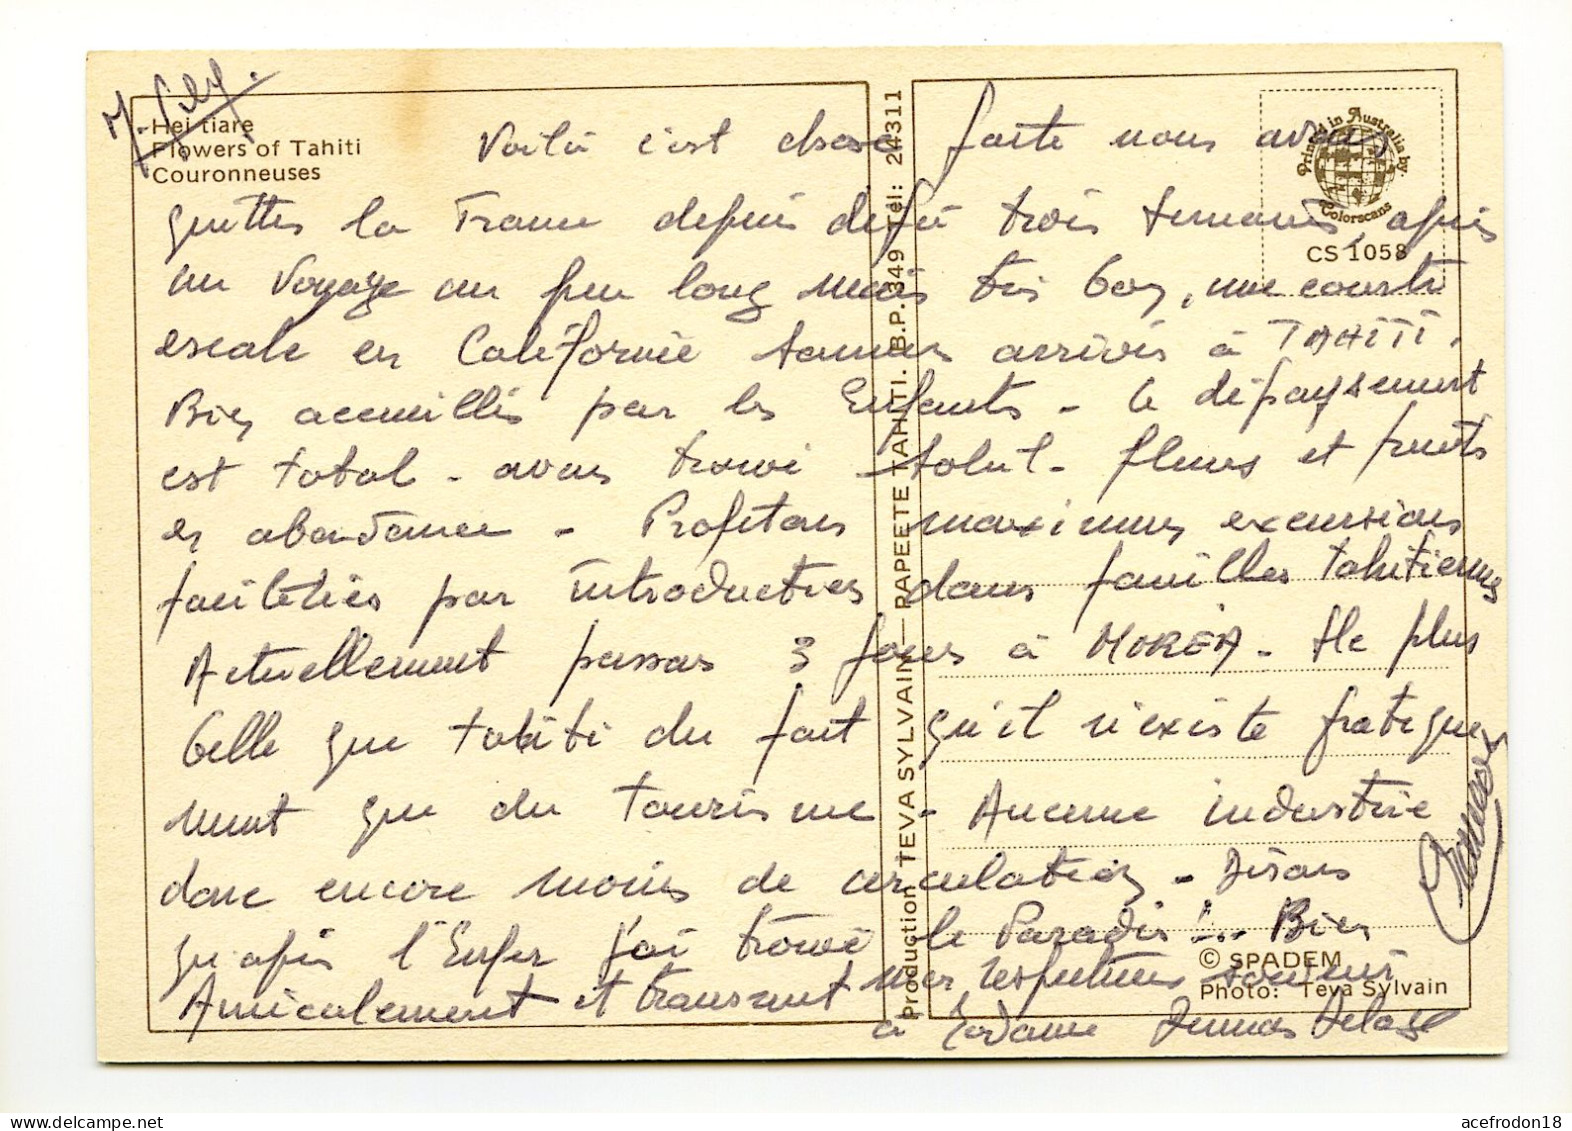 Hei tiare
Flowers of Tahiti
Couronneuses
Voilà c'est chose faite nous avons
quittés la France depuis déjà trois semaines, après
un voyage un peu long mais très bon, une courte
escale en Californie sommes arrivés à TAHITI.
Bien accueillis par les Enfants - le dépaysement
est total - avons trouvé soleil - fleurs et fruits
en abondance - Profitons maximum excursions
facilitées par introductions dans familles tahitiennes
Actuellement passons 3 jours à MOREA - Ile plus
belle que tahiti du fait qu'il n'existe pratique
ment que du tourisme - Aucune industrie
donc encore moins de circulation - Disons
qu'après l'Enfer j'ai trouvé le Paradis !... Bien
Amicalement et transmet mes respectueux souvenirs
à Madame
Production TEVA SYLVAIN — PAPEETE TAHITI. B.P. 349 Tél: 24311
Printed in Australia by Colorscans
CS 1058
© SPADEM
Photo: Teva Sylvain
acefrodon18